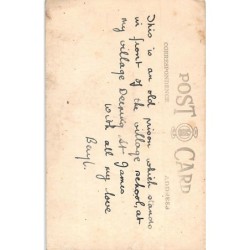 POST CARD
CORRESPONDENCE
ADDRESS
This is an old prison which stands
in front of the village school, at
my village Deeping St James
With all my love
Bayl.